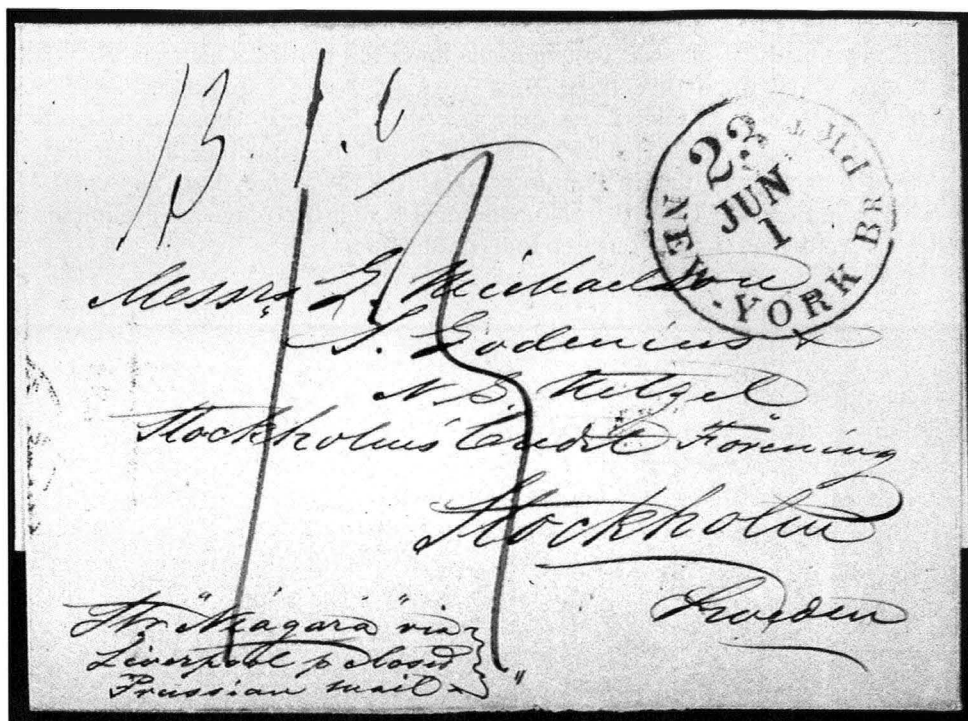 23
JUN
1
NEW-YORK BR PKT
Messrs G. Michaelson
S. Godenius &
N. G.
Stockholms Credit Förening
Stockholm
Sweden
Str "Niagara" via
Liverpool p closed
Prussian mail